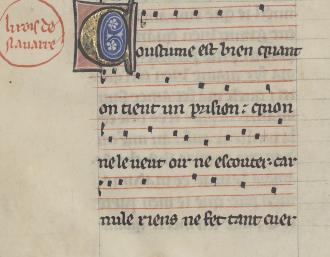 li rois de
nauarre
Coustume est bien quant
on tient un prison : quon
ne le ueut oir ne escouter. car
nule riens ne fet tant cuer